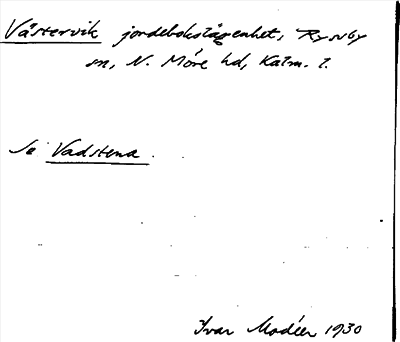 Västervik jordebokslägenhet, Ryssby
sn, N. Möre hd, Kalm. l.
Se Vadstena.
Ivar Modéer 1930